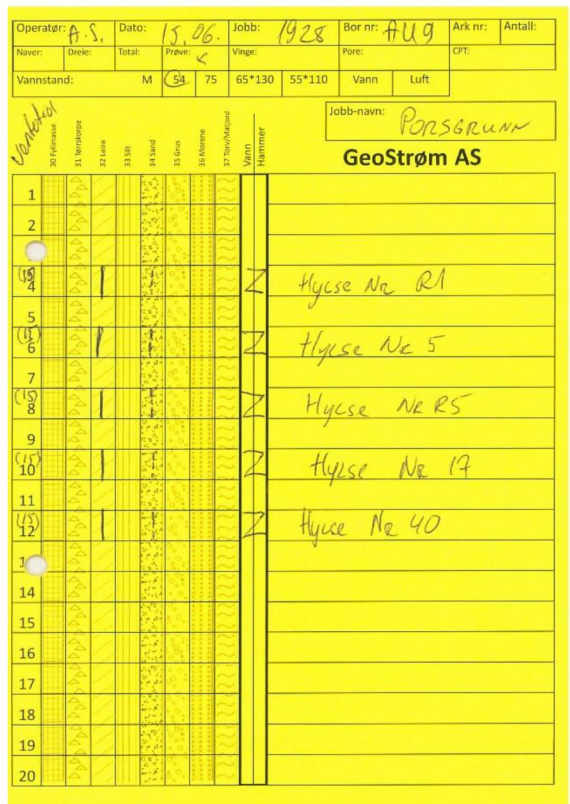 Operatør: A.S. Dato: 15.06. Jobb: 1928 Bor nr: AU9 Ark nr: Antall:
Naver: Dreie: Total: Prøve: x Vinge: Pore: CPT:
Vannstand: M 54 75 65*130 55*110 Vann Luft
Ventetid
30 Fyllmasse
31 Tørrskorpe
32 Leire
33 Silt
34 Sand
35 Grus
36 Morene
37 Torv/Matjord
Vann
Hammer
Jobb-navn: PORSGRUNN
GeoStrøm AS
1
2
(15)
4 Hylse Nr R1
5
(15)
6 Hylse Nr 5
7
(15)
8 Hylse Nr R5
9
(15)
10 Hylse Nr 17
11
(15)
12 Hylse Nr 40
1
14
15
16
17
18
19
20